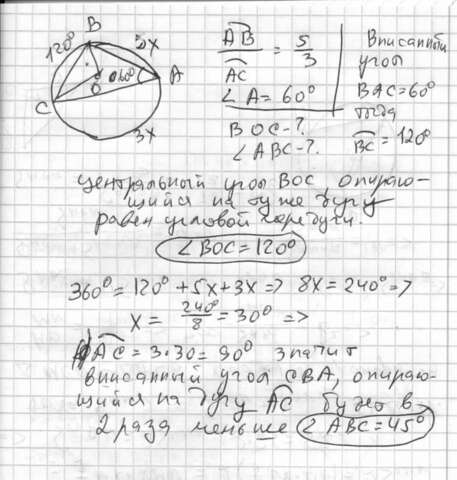 B
120° 5x
60° A
O
C
3x
AB/AC = 5/3
∠A = 60°
BOC - ?
∠ABC - ?
Вписанный
угол
BAC = 60°
тогда
BC = 120°
Центральный угол BOC, опираю-
щийся на ту же дугу
равен угловой мере дуги.
∠BOC = 120°
360° = 120° + 5x + 3x => 8x = 240° =>
x = 240°/8 = 30° =>
AC = 3·30 = 90° значит
вписанный угол CBA, опираю-
щийся на дугу AC будет в
2 раза меньше ∠ABC = 45°